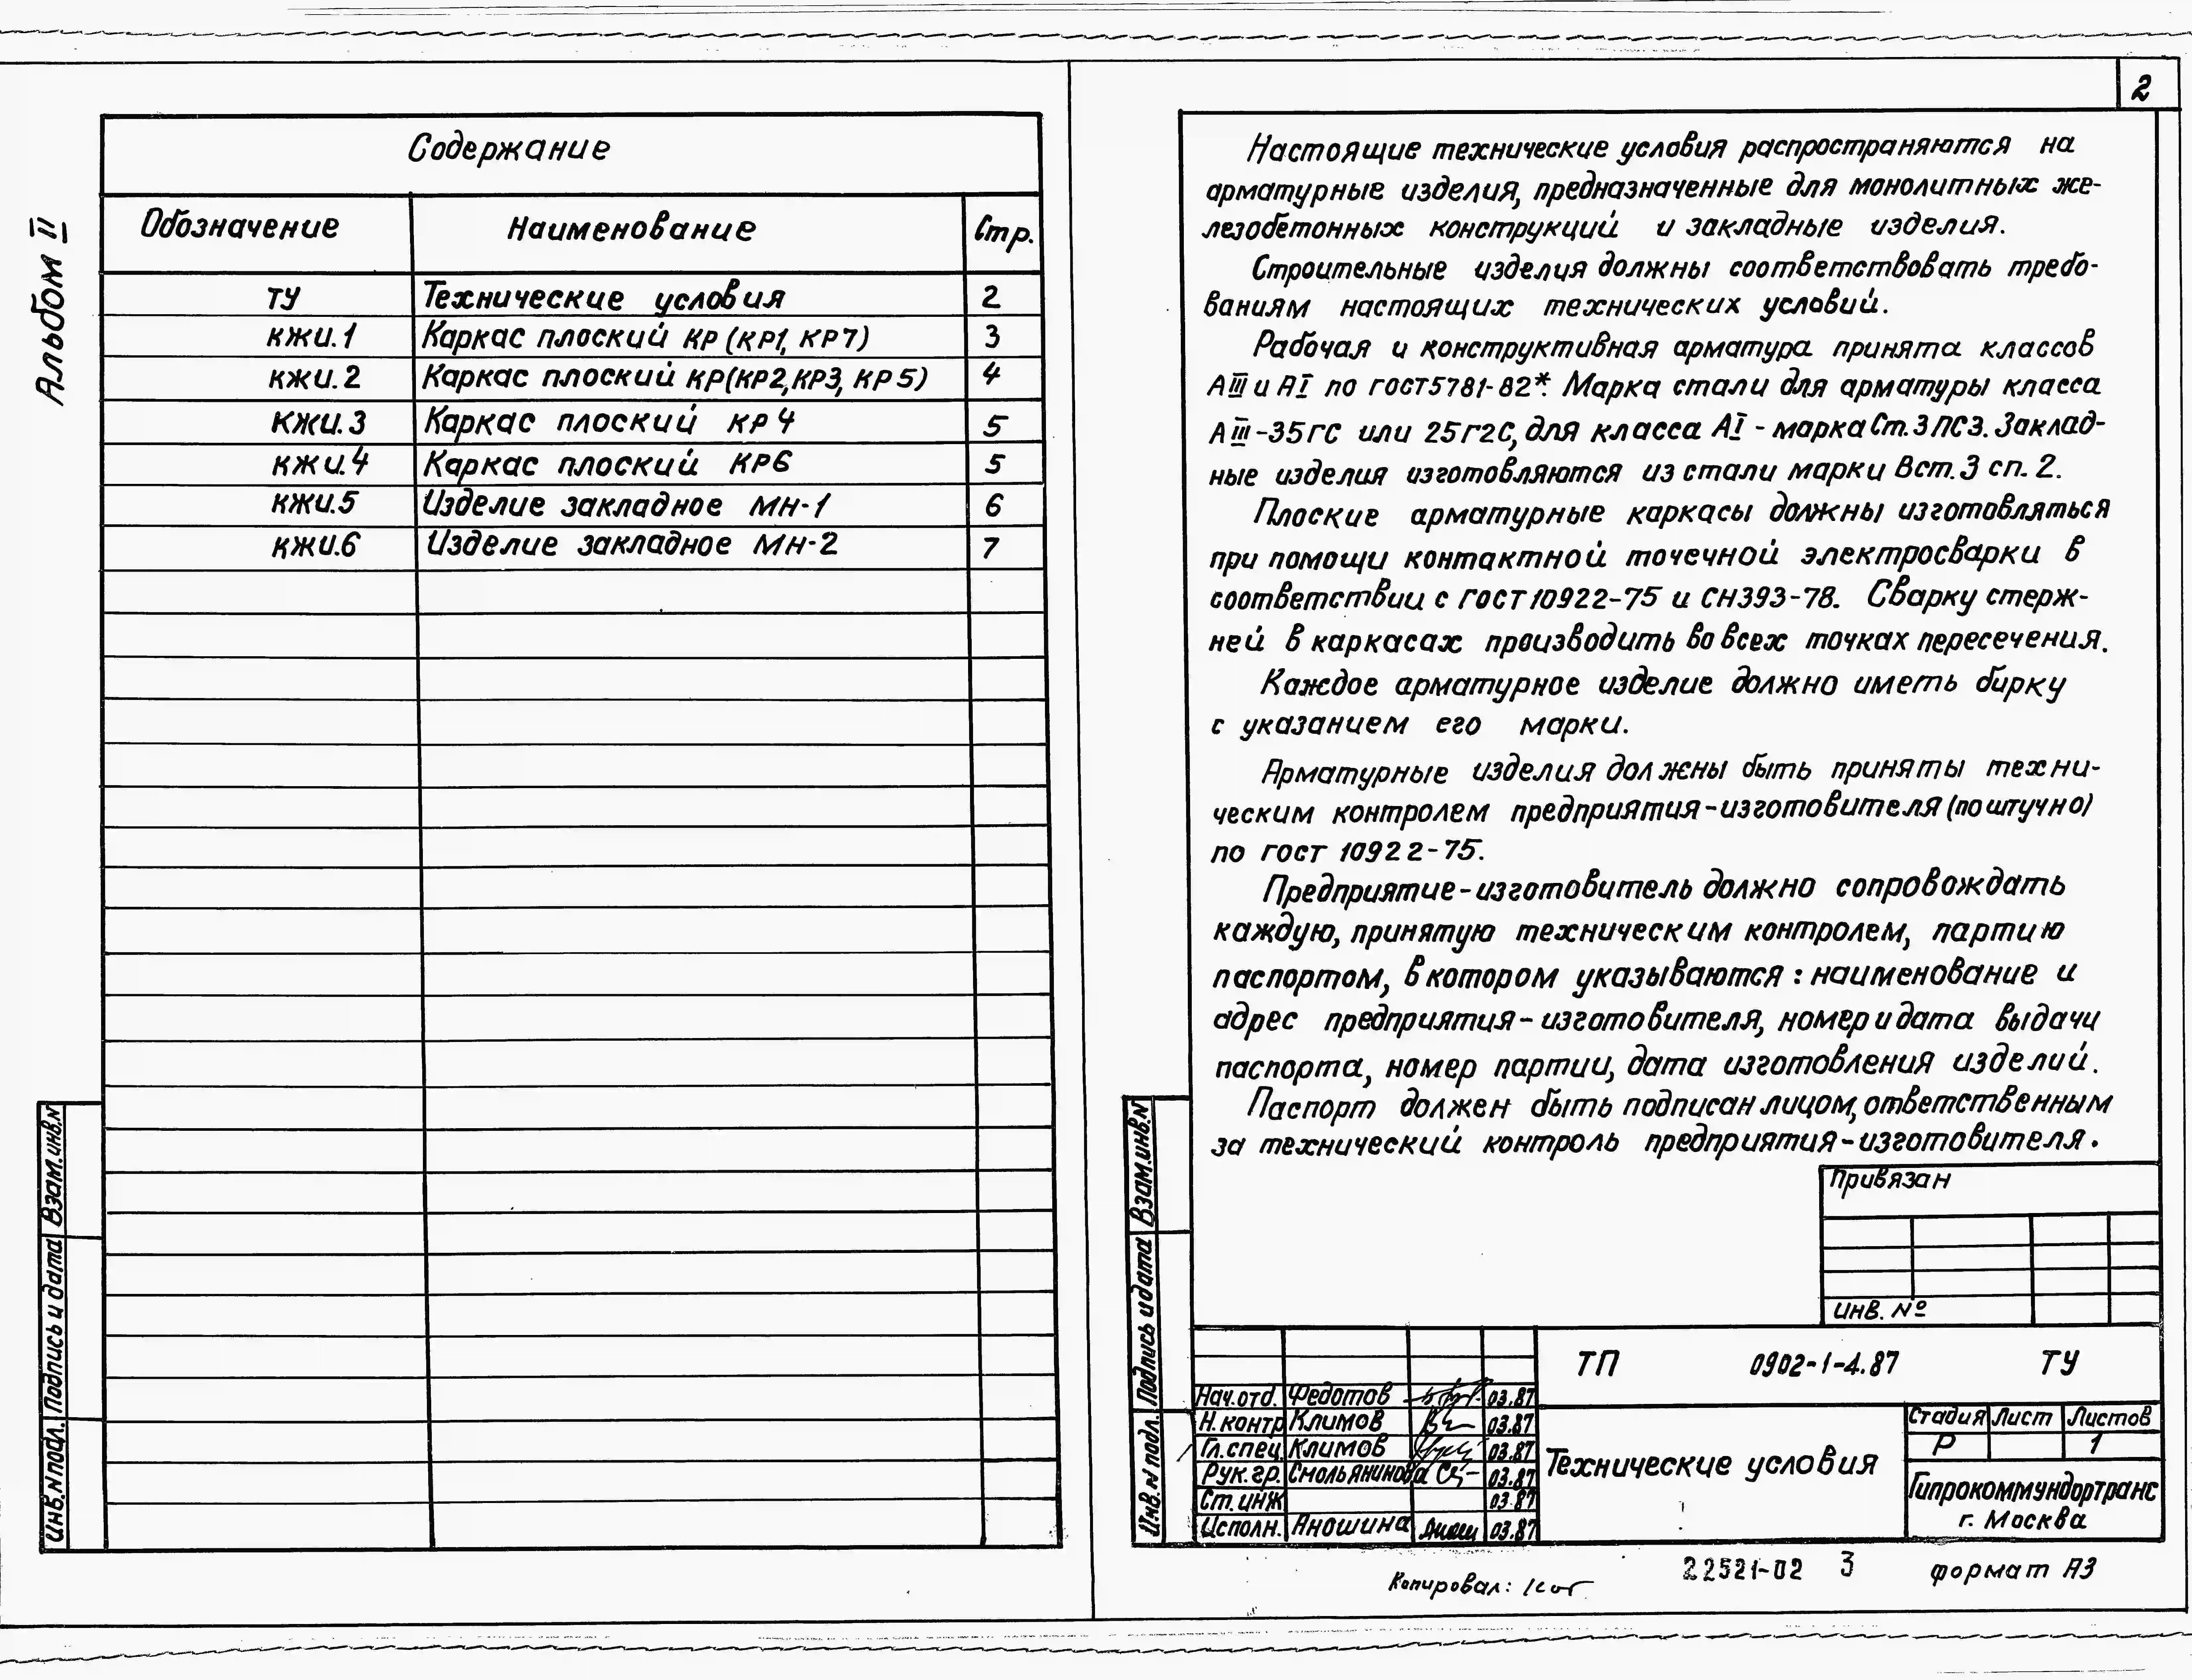 Альбом II
Содержание
Обозначение Наименование Стр.
ТУ Технические условия 2
КЖИ.1 Каркас плоский КР (КР1, КР7) 3
КЖИ.2 Каркас плоский КР(КР2,КР3, КР5) 4
КЖИ.3 Каркас плоский КР4 5
КЖИ.4 Каркас плоский КР6 5
КЖИ.5 Изделие закладное МН-1 6
КЖИ.6 Изделие закладное МН-2 7
Взам.инв.N
Подпись и дата
Инв.N подл.
2
Настоящие технические условия распространяются на
арматурные изделия, предназначенные для монолитных же-
лезобетонных конструкций и закладные изделия.
Строительные изделия должны соответствовать требо-
ваниям настоящих технических условий.
Рабочая и конструктивная арматура принята классов
АIII и АI по ГОСТ5781-82*. Марка стали для арматуры класса
АIII-35ГС или 25Г2С, для класса АI - марка Ст.3ПС3. Заклад-
ные изделия изготовляются из стали марки Вст.3 сп.2.
Плоские арматурные каркасы должны изготовляться
при помощи контактной точечной электросварки в
соответствии с ГОСТ 10922-75 и СН393-78. Сварку стерж-
ней в каркасах производить во всех точках пересечения.
Каждое арматурное изделие должно иметь бирку
с указанием его марки.
Арматурные изделия должны быть приняты техни-
ческим контролем предприятия-изготовителя (поштучно)
по ГОСТ 10922-75.
Предприятие-изготовитель должно сопровождать
каждую, принятую техническим контролем, партию
паспортом, в котором указываются: наименование и
адрес предприятия-изготовителя, номер и дата выдачи
паспорта, номер партии, дата изготовления изделий.
Паспорт должен быть подписан лицом, ответственным
за технический контроль предприятия-изготовителя.
Взам.инв.N
Подпись и дата
Инв.N подл.
Привязан
Инв. №
ТП 0902-1-4.87 ТУ
Нач.отд. Федотов 03.87
Н.контр Климов 03.87
Гл.спец Климов 03.87
Рук.гр. Смольянинова 03.87
Ст.инж 03.87
Исполн. Аношина 03.87
Технические условия
Стадия Лист Листов
Р 1
Гипрокоммундортранс
г. Москва
Копировал:
22521-02 3
формат А3